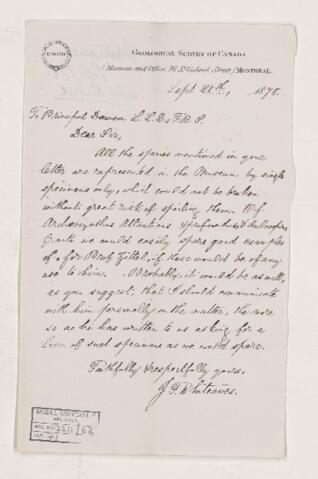 GEOLOGICAL SURVEY OF CANADA
Museum and Office, 76 St. Gabriel Street, MONTREAL.
Sept 28th, 1878.
To Principal Dawson L.L.D., F.R.S.
Dear Sir,
All the species mentioned in your
letter are represented in the Museum by single
specimens only, which could not be broken
without great risk of spoiling them. Of
Archæocyathus
Grants we could easily spare good examples
of, for Prof. Zittel, if these would be of any
use to him. Probably it would be as well,
as you suggest, that I should communicate
with him personally on the matter, the more
so as he has written to us asking for a
of such specimens as we could spare.
Faithfully & respectfully yours,
J. F. Whiteaves.
McGILL UNIVERSITY
ARCHIVES
ACC. NO.
REF.